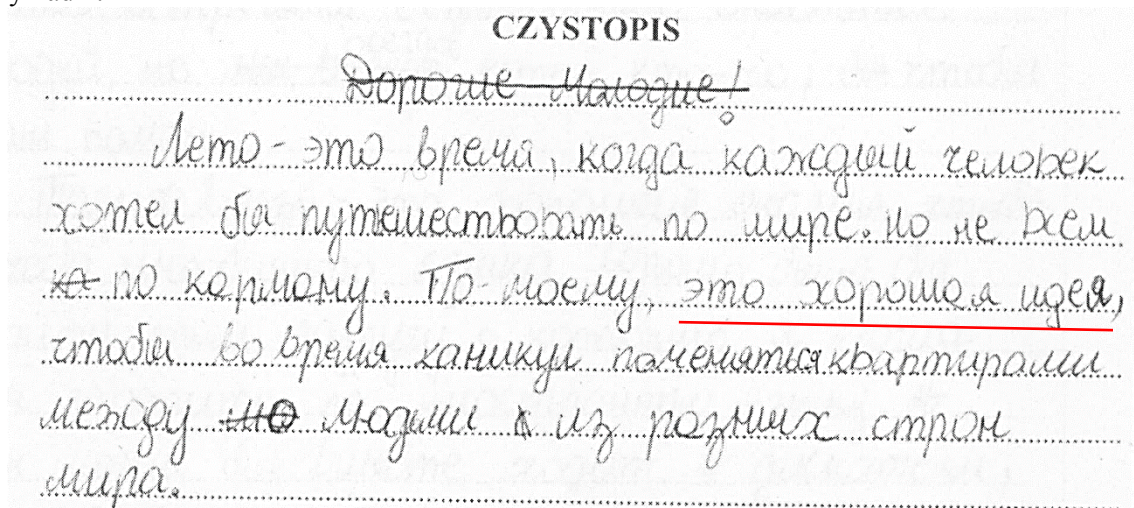 CZYSTOPIS
Дорогие Молодые!
Лето - это время, когда каждый человек
хотел бы путешествовать по мире. но не всем
по карману. По-моему, это хорошая идея,
чтобы во время каникул поменяться квартирами
между людми из разных стран
мира.